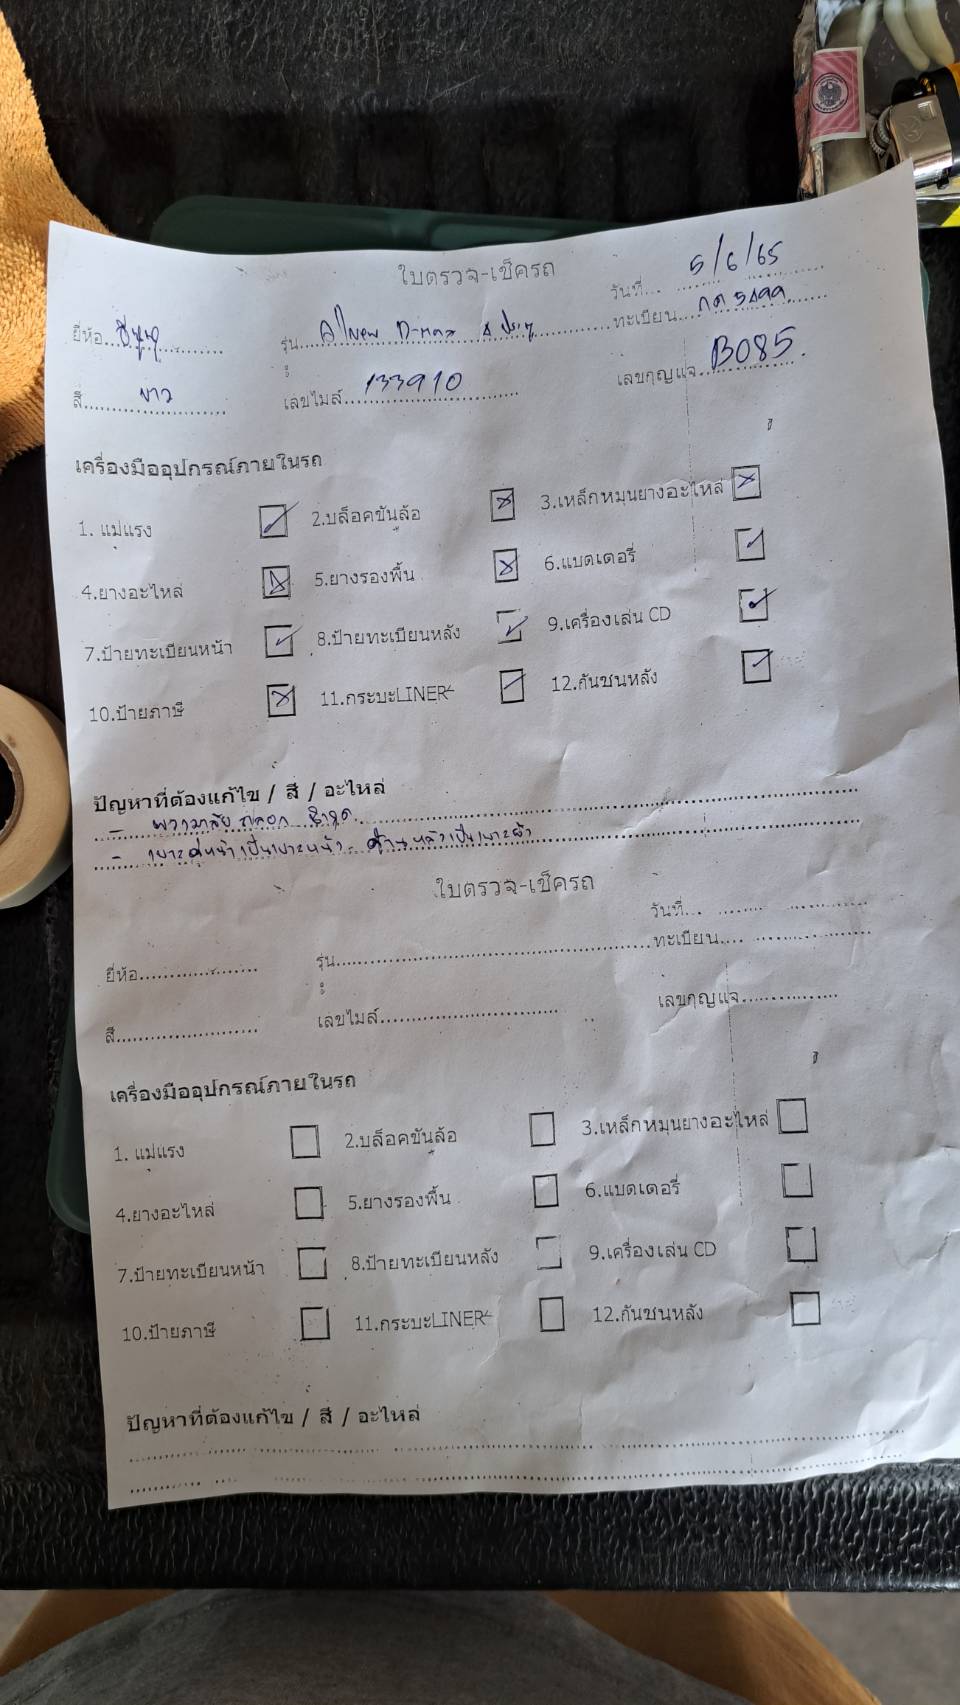 ใบตรวจ-เช็ครถ
วันที่... 5/6/65
ยี่ห้อ... อีซูซุ รุ่น... All New D-max 4 ประตู ทะเบียน...
สี... ขาว เลขไมล์... 133910 เลขกุญแจ... B085
เครื่องมืออุปกรณ์ภายในรถ
1. แม่แรง 2.บล็อคขันล้อ 3.เหล็กหมุนยางอะไหล่
4.ยางอะไหล่ 5.ยางรองพื้น 6.แบตเตอรี่
7.ป้ายทะเบียนหน้า 8.ป้ายทะเบียนหลัง 9.เครื่องเล่น CD
10.ป้ายภาษี 11.กระบะLINER 12.กันชนหลัง
ปัญหาที่ต้องแก้ไข / สี / อะไหล่
- พวงมาลัย ถลอก ชำรุด
- เบาะคู่หน้าเป็นเบาะหนัง ด้านหลังเป็นเบาะผ้า
ใบตรวจ-เช็ครถ
วันที่...
ยี่ห้อ... รุ่น... ทะเบียน...
สี... เลขไมล์... เลขกุญแจ...
เครื่องมืออุปกรณ์ภายในรถ
1. แม่แรง 2.บล็อคขันล้อ 3.เหล็กหมุนยางอะไหล่
4.ยางอะไหล่ 5.ยางรองพื้น 6.แบตเตอรี่
7.ป้ายทะเบียนหน้า 8.ป้ายทะเบียนหลัง 9.เครื่องเล่น CD
10.ป้ายภาษี 11.กระบะLINER 12.กันชนหลัง
ปัญหาที่ต้องแก้ไข / สี / อะไหล่